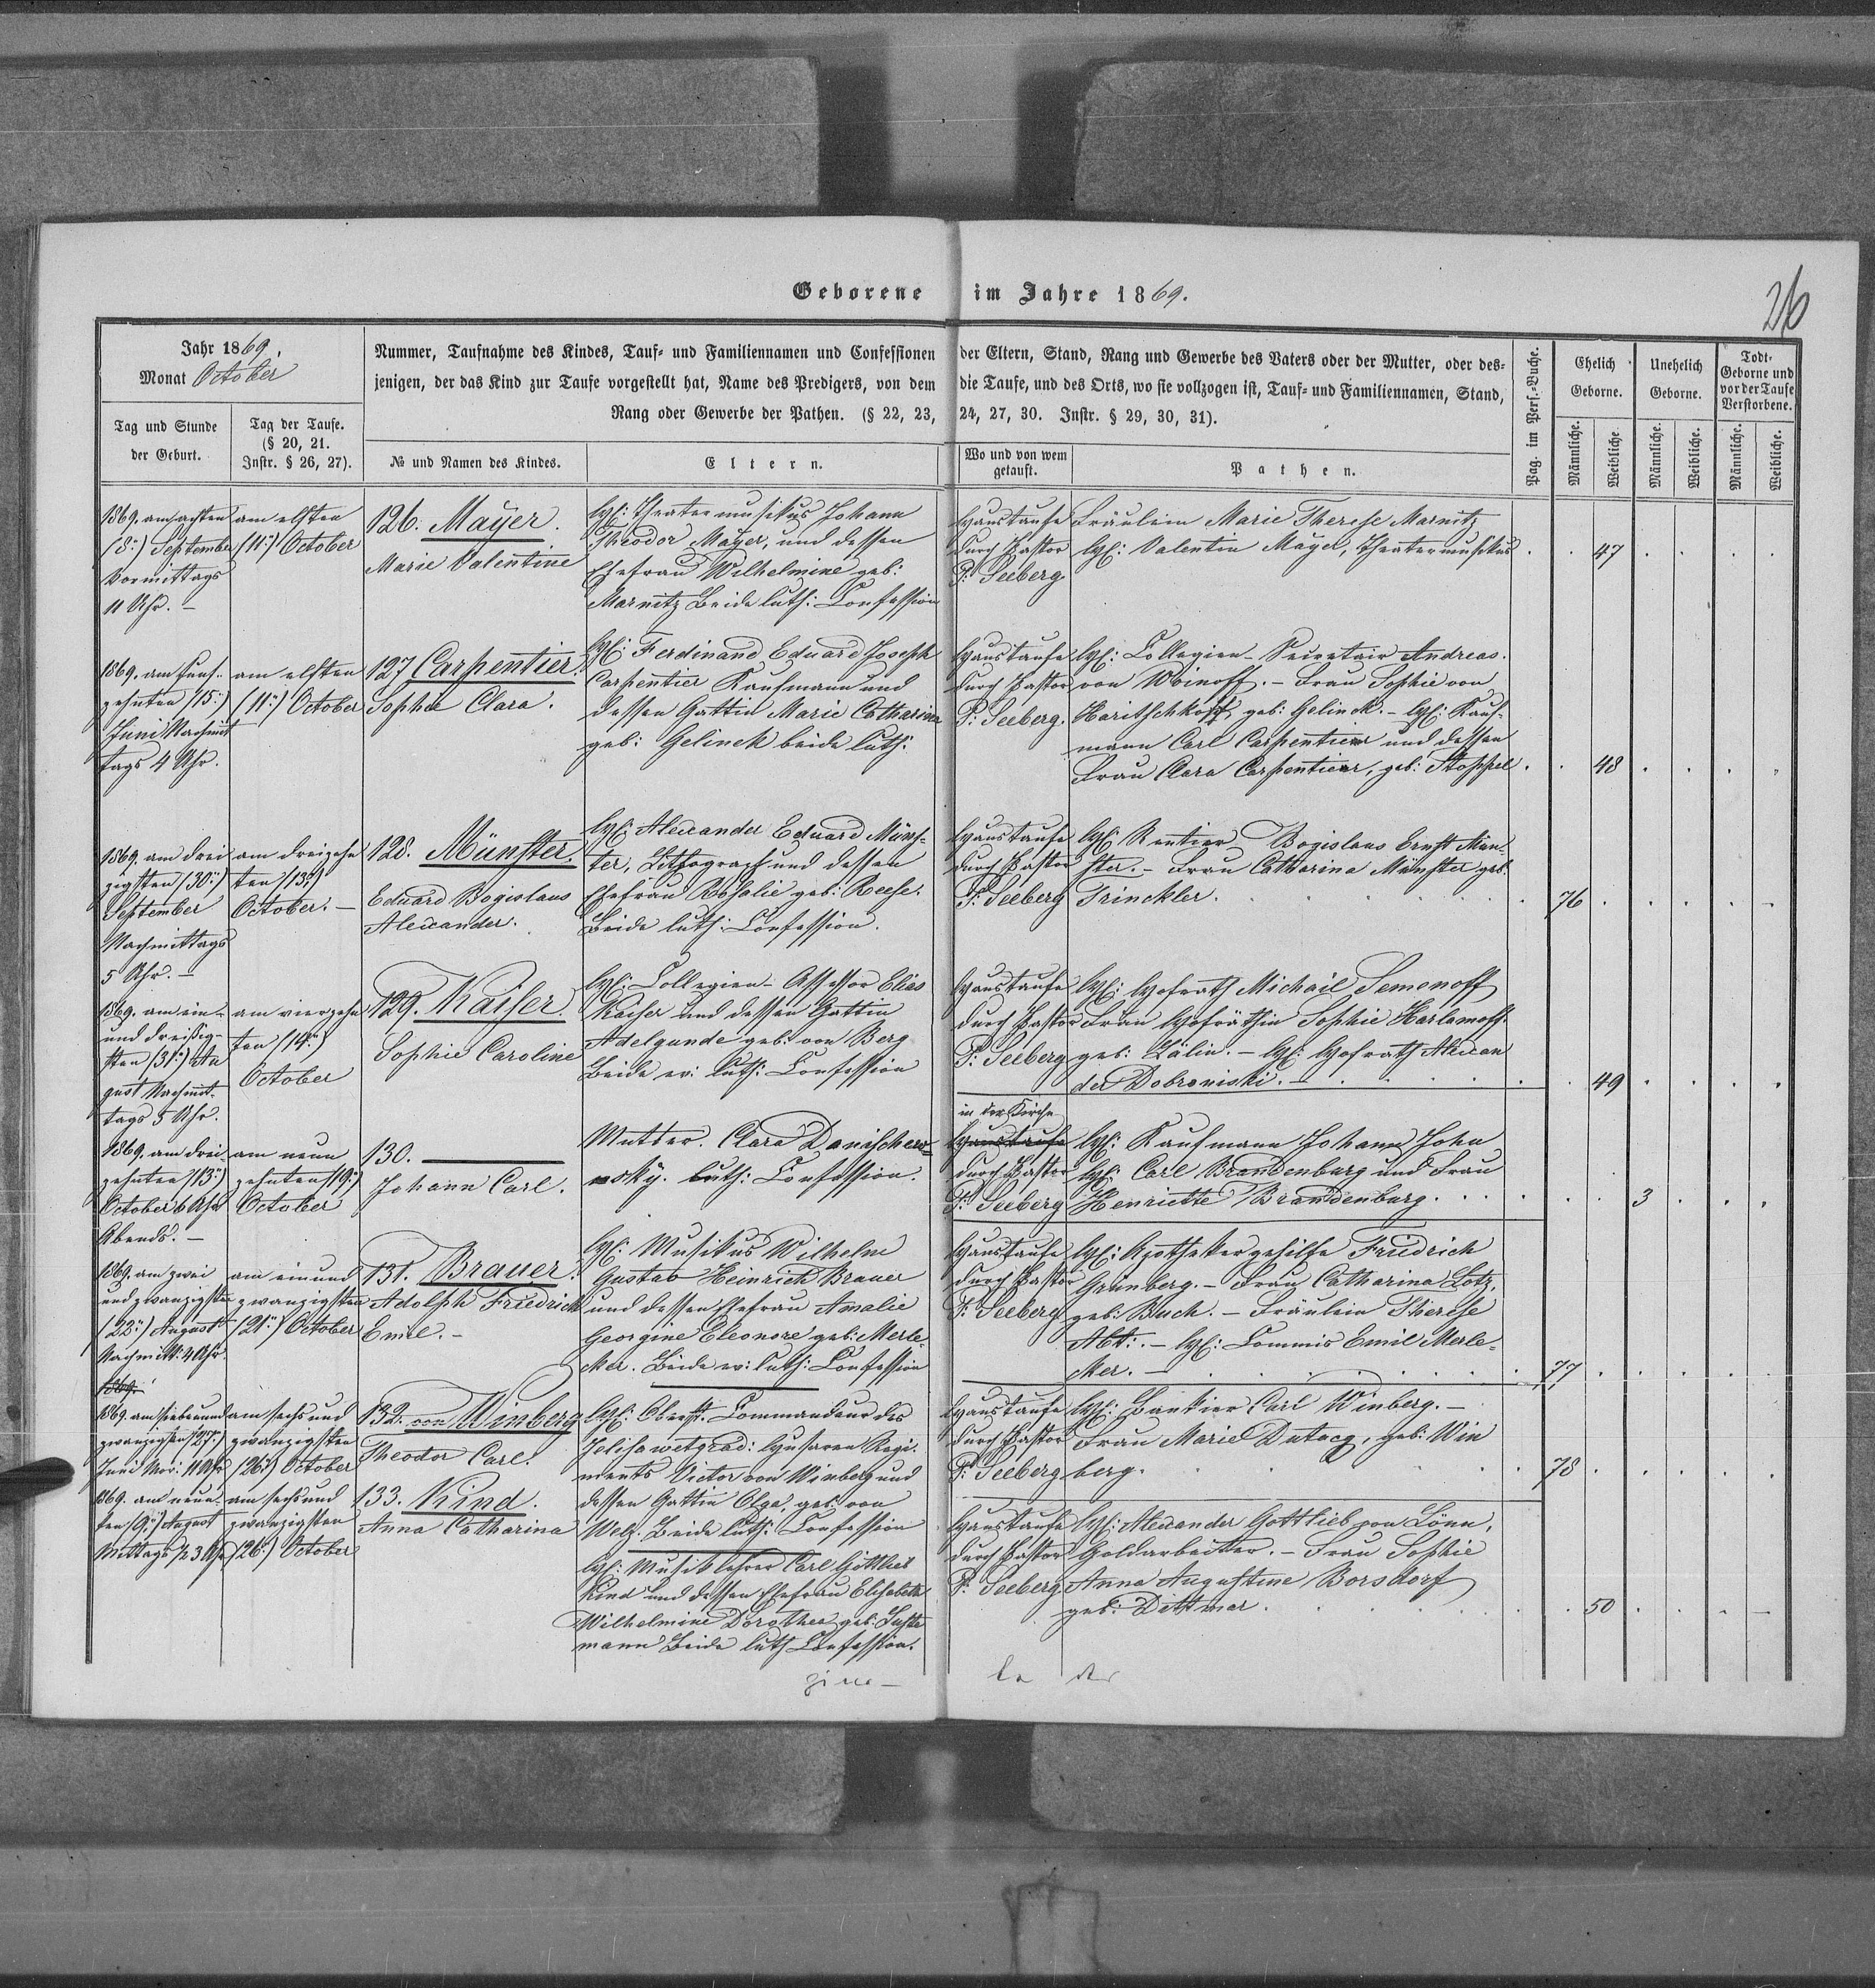 Geborene im Jahre 1869.
26
Jahr 1869.
Monat October
Tag und Stunde
der Geburt.
Tag der Taufe.
(§ 20, 21.
Instr. § 26, 27).
Nummer, Taufnahme des Kindes, Tauf- und Familiennamen und Confessionen der Eltern, Stand, Rang und Gewerbe des Vaters oder der Mutter, oder des-
jenigen, der das Kind zur Taufe vorgestellt hat, Name des Predigers, von dem die Taufe, und des Orts, wo sie vollzogen ist, Tauf- und Familiennamen, Stand,
Rang oder Gewerbe der Pathen. (§ 22, 23, 24, 27, 30. Instr. § 29, 30, 31).
№ und Namen des Kindes.
Eltern.
Wo und von wem
getauft.
Pathen.
Pag. im Pers.-Buche.
Ehelich
Geborne.
Unehelich
Geborne.
Todt-
Geborne und
vor der Taufe
Verstorbene.
Männliche.
Weibliche.
Männliche.
Weibliche.
Männliche.
Weibliche.
1869. am achten
(8:) September
Vormittags
11 Uhr. –
am elften
(11:) October
126. Mayer.
Marie Valentine
H: Theatermusikus Johann
Theodor Mayer, und dessen
Ehefrau Wilhelmine geb:
Marnitz Beide luth: Confession
Haustaufe
durch Pastor
P: Seeberg
Fräulein Marie Therese Marnitz
H: Valentin Mayer, Theatermusikus
47
1869. am funf-
zehnten (15:)
Juni Nachmit
tags 4 Uhr.
am elften
(11:) October
127 Carpentier.
Sophie Clara.
H: Ferdinand Eduard Joseph
Carpentier Kaufmann und
dessen Gattin Marie Catharina
geb: Gelinek beide luth:
Haustaufe
durch Pastor
P: Seeberg.
H: Collegien-Secretair Andreas
von Woinoff. – Frau Sophie von
Haritschkoff geb: Gelinek. – H: Kauf-
mann Carl Carpentier und dessen
Frau Clara Carpentier, geb: Stoppel
48
1869. am drei
zigsten (30:)
September
Nachmittags
5 Uhr. –
am dreizehn
ten (13:)
October. –
128. Münster.
Eduard Bogislaus
Alexander.
H: Alexander Eduard Müns-
ter, Lithograph und dessen
Ehefrau Rosalie geb: Reese.
Beide luth: Confession.
Haustaufe
durch Pastor
P: Seeberg
H: Rentier Bogislaus Ernst Mün-
ster. – Frau Catharina Münster geb.
Trinckler.
76
1869. am ein-
und dreißig-
sten (31:) Au
gust Nachmit-
tags 5 Uhr.
am vierzehn
ten (14:)
October
129. Kaiser.
Sophie Caroline
H: Collegien-Assessor Elias
Kaiser und dessen Gattin
Adelgunde geb: von Berg
Beide ev: luth: Confession
Haustaufe
durch Pastor
P: Seeberg
H: Hofrath Michail Semonoff
Frau Hofräthin Sophie Harlamoff
geb: Zälin. – H: Hofrath Alexan
der Dobroniski. –
49
1869. am drei-
zehnten (13:)
October 6 Uhr
Abends. –
am neun
zehnten (19:)
October
130.
Johann Carl.
Mutter. Clara Danischew-
sky. luth: Confession.
in der Kirche
Haustaufe
durch Pastor
P: Seeberg
H: Kaufmann Johann John
H: Carl Brandenburg und Frau
Henriette Brandenburg.
3
1869. am zwei
und zwanzigsten
(22:) August
Nachmitt: 4 Uhr.
am ein und
zwanzigsten
(21:) October
131. Brauer.
Adolph Friedrich
Emil. –
H: Musikus Wilhelm
Gustav Heinrich Brauer
und dessen Ehefrau Amalie
Georgine Eleonore geb: Merle-
cker. Beide ev: luth: Confession
Haustaufe
durch Pastor
P: Seeberg
H: Apothekergehilfe Friedrich
Grünberg. – Frau Catharina Lotz,
geb: Buch. – Fräulein Therese
Abt: – H: Commis Emil Merle-
cker. –
77
1869.
1869. am sieben und
zwanzigsten (27.)
Juni Mor: 11 Uhr
am sechs und
zwanzigsten
(26:) October
132. von Winberg
Theodor Carl.
H: Oberst. Commandeur des
Jelisawetgrad: Husaren Regi-
ments Victor von Winberg und
dessen Gattin Olga, geb: von
Welz. Beide luth: Confession
Haustaufe
durch Pastor
P: Seeberg
H: Bankier Carl Winberg. –
Frau Marie Dutacq, geb: Win
berg.
78
1869. am neun-
ten (9:) August
Mittags 1/2 3 Uhr
am sechs und
zwanzigsten
(26:) October
133. Kind.
Anna Catharina
H: Musiklehrer Carl Gottlieb
Kind und dessen Ehefrau Elisabeth
Wilhelmine Dorothea geb:
mann Beide luth Confession.
Haustaufe
durch Pastor
P: Seeberg
H: Alexander Gottlieb von Lönn,
Goldarbeiter. – Frau Sophie
Anna Augustine Borsdorf
geb: Dittmar.
50